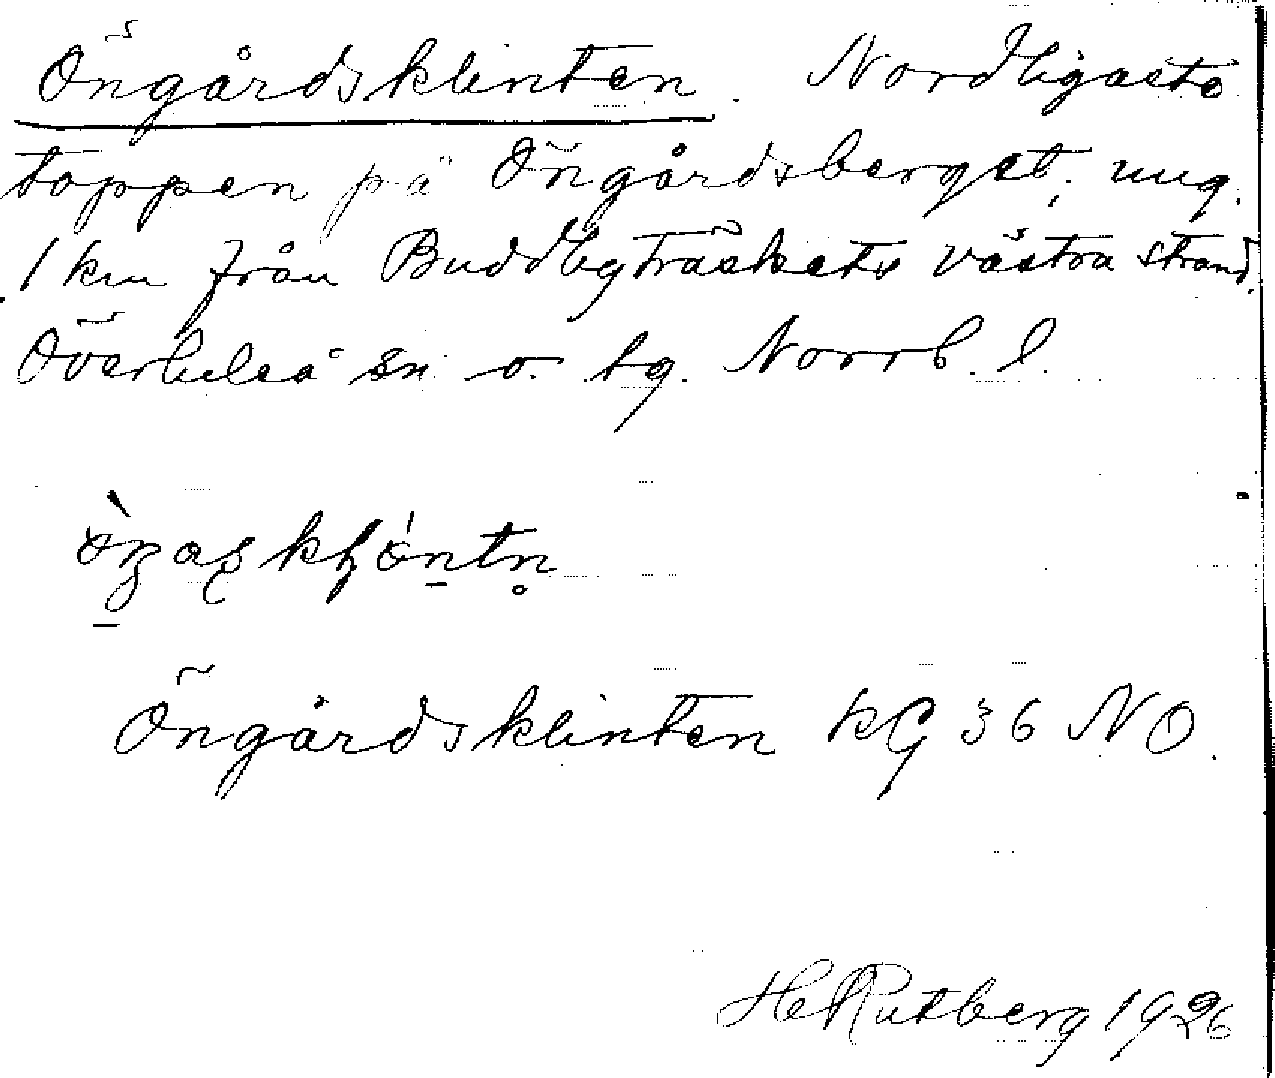 Öngårdsklinten. Nordligaste
toppen på Öngårdsberget, ung.
1 km från Buddbyträskets västra strand.
Överluleå sn o. tg. Norrb. l.
Öngårdsklinten kG 36 NO.
H Rutberg 1926